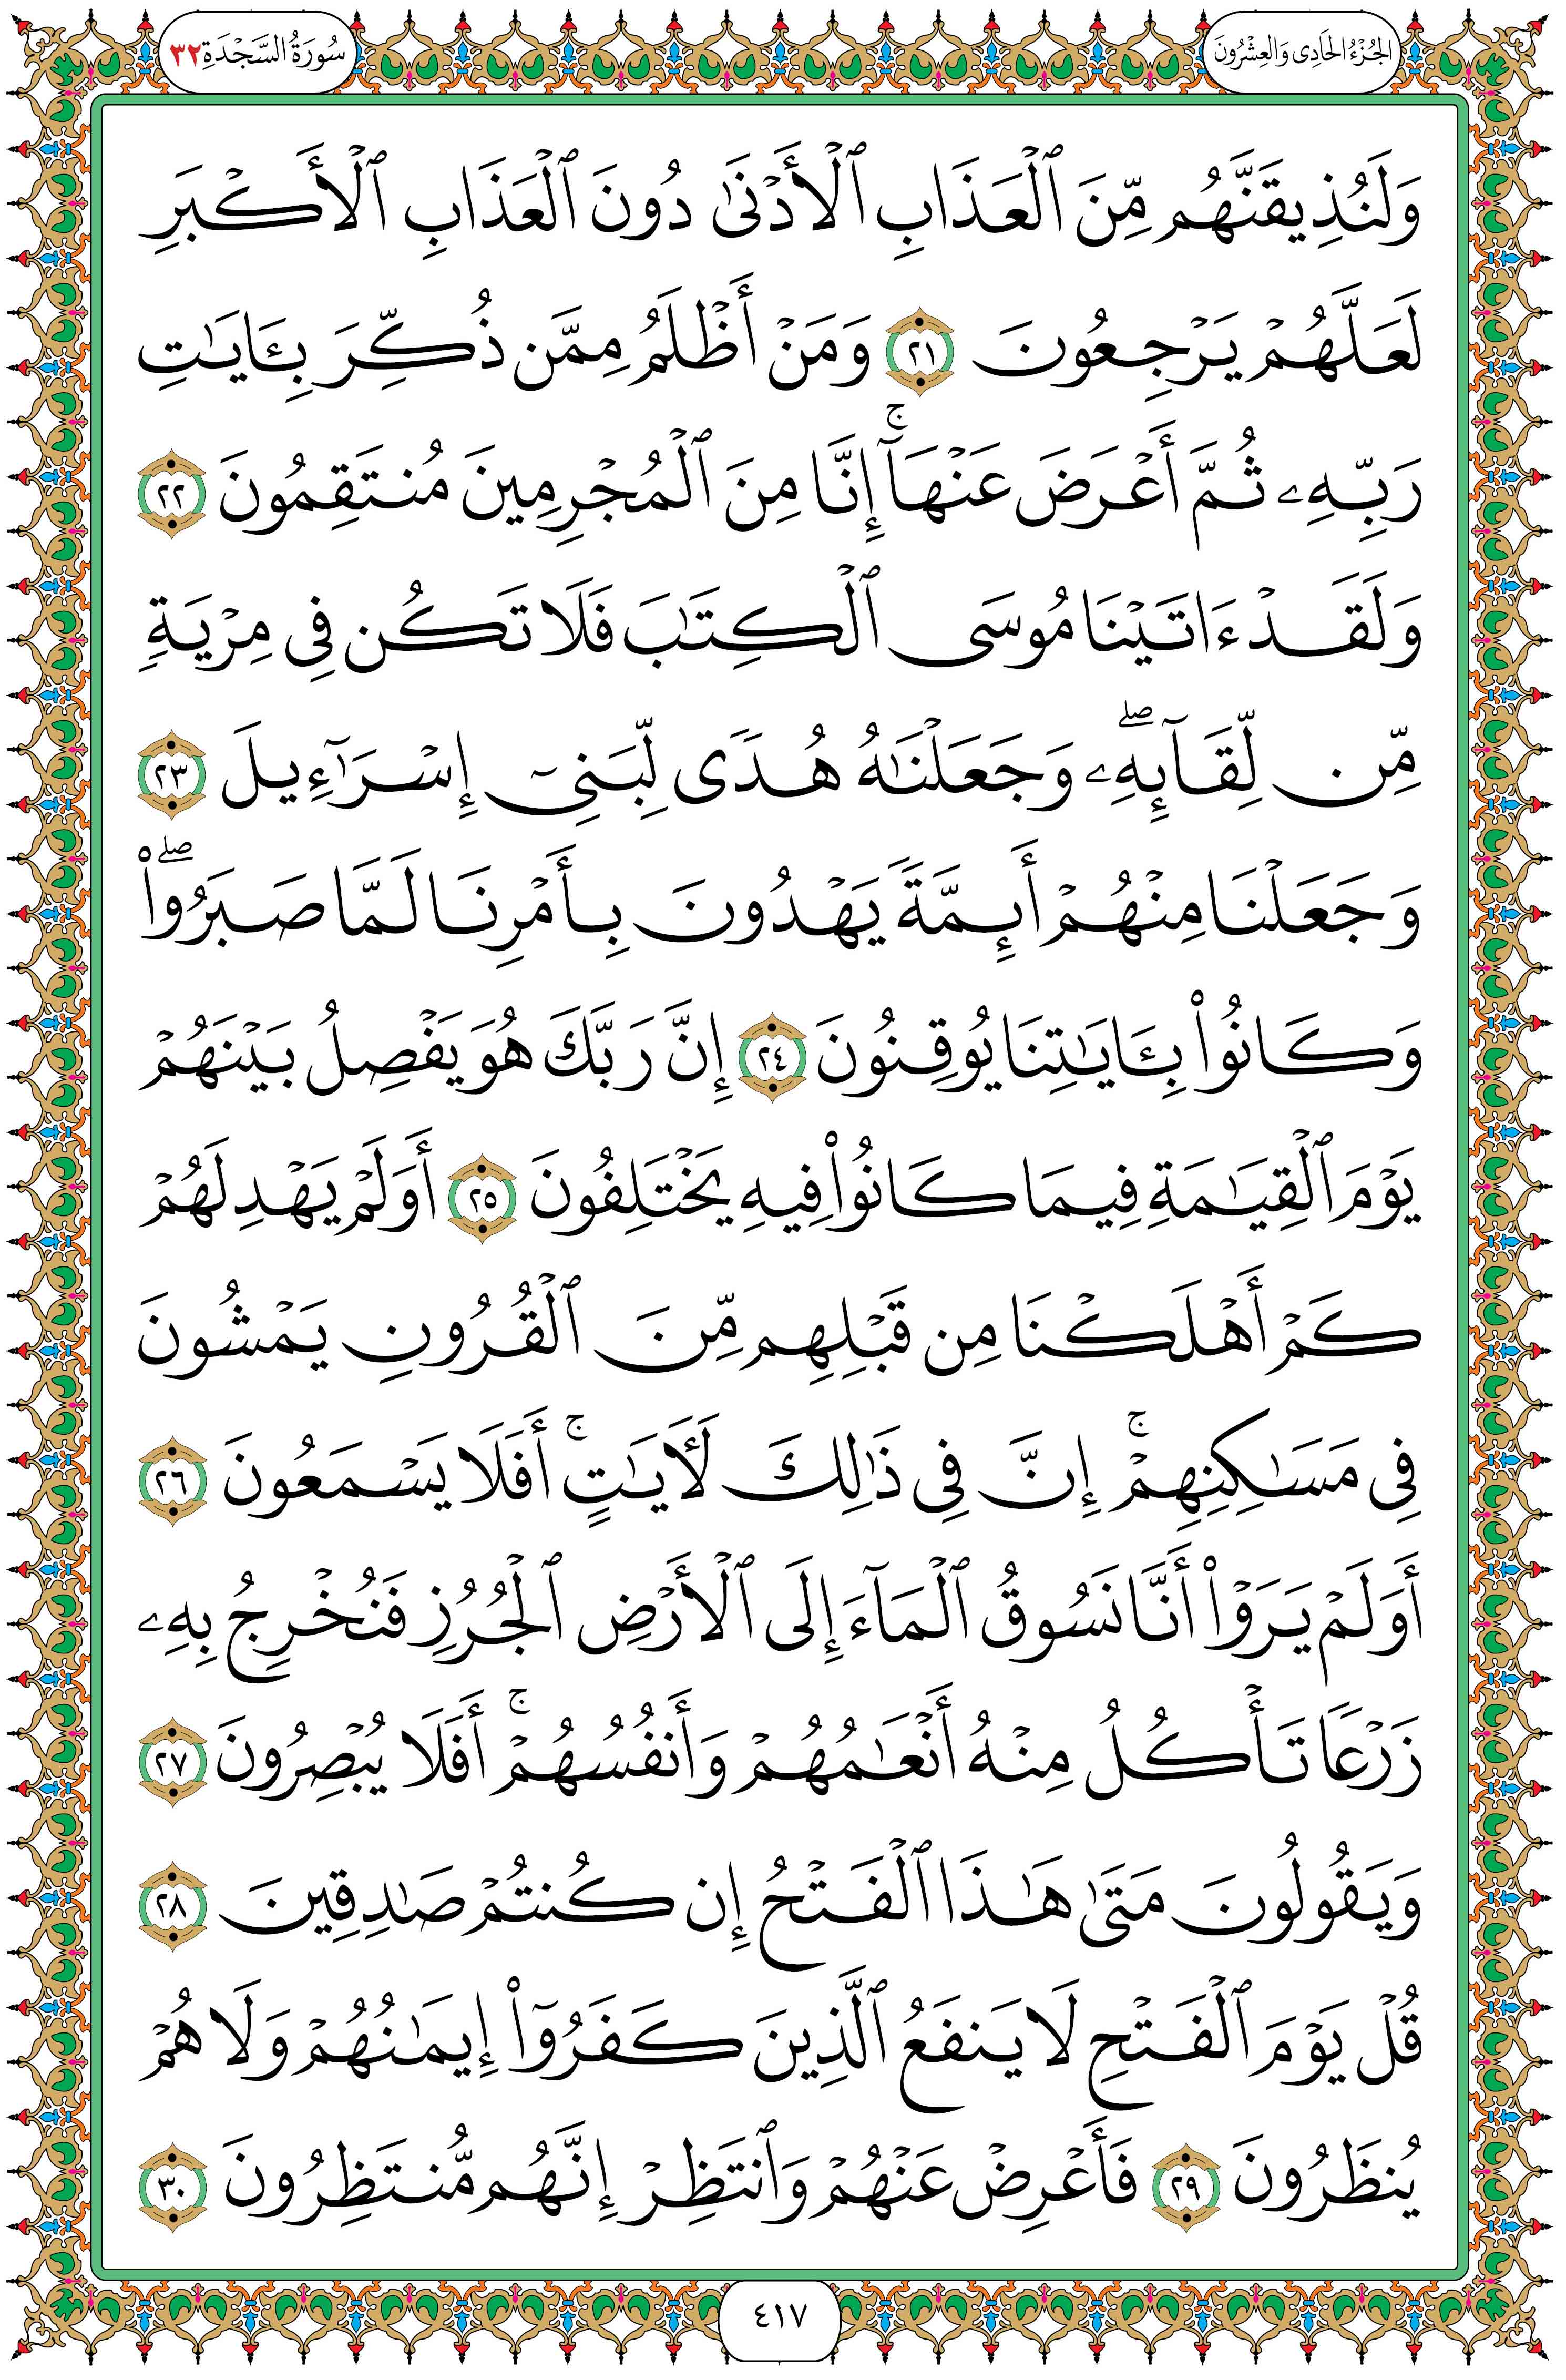 الجُزْءُ الحَادِى وَالعِشْرُونَ
سُورَةُ السَّجْدَةِ ٣٢
وَلَنُذِيقَنَّهُم مِّنَ ٱلْعَذَابِ ٱلْأَدْنَىٰ دُونَ ٱلْعَذَابِ ٱلْأَكْبَرِ
لَعَلَّهُمْ يَرْجِعُونَ ٢١ وَمَنْ أَظْلَمُ مِمَّن ذُكِّرَ بِـَٔايَـٰتِ
رَبِّهِۦ ثُمَّ أَعْرَضَ عَنْهَآ ۚ إِنَّا مِنَ ٱلْمُجْرِمِينَ مُنتَقِمُونَ ٢٢
وَلَقَدْ ءَاتَيْنَا مُوسَى ٱلْكِتَـٰبَ فَلَا تَكُن فِى مِرْيَةٍ
مِّن لِّقَآئِهِۦ ۖ وَجَعَلْنَـٰهُ هُدًى لِّبَنِىٓ إِسْرَٰٓءِيلَ ٢٣
وَجَعَلْنَا مِنْهُمْ أَئِمَّةً يَهْدُونَ بِأَمْرِنَا لَمَّا صَبَرُوا۟ ۖ
وَكَانُوا۟ بِـَٔايَـٰتِنَا يُوقِنُونَ ٢٤ إِنَّ رَبَّكَ هُوَ يَفْصِلُ بَيْنَهُمْ
يَوْمَ ٱلْقِيَـٰمَةِ فِيمَا كَانُوا۟ فِيهِ يَخْتَلِفُونَ ٢٥ أَوَلَمْ يَهْدِ لَهُمْ
كَمْ أَهْلَكْنَا مِن قَبْلِهِم مِّنَ ٱلْقُرُونِ يَمْشُونَ
فِى مَسَـٰكِنِهِمْ ۚ إِنَّ فِى ذَٰلِكَ لَـَٔايَـٰتٍ ۚ أَفَلَا يَسْمَعُونَ ٢٦
أَوَلَمْ يَرَوْا۟ أَنَّا نَسُوقُ ٱلْمَآءَ إِلَى ٱلْأَرْضِ ٱلْجُرُزِ فَنُخْرِجُ بِهِۦ
زَرْعًا تَأْكُلُ مِنْهُ أَنْعَـٰمُهُمْ وَأَنفُسُهُمْ ۚ أَفَلَا يُبْصِرُونَ ٢٧
وَيَقُولُونَ مَتَىٰ هَـٰذَا ٱلْفَتْحُ إِن كُنتُمْ صَـٰدِقِينَ ٢٨
قُلْ يَوْمَ ٱلْفَتْحِ لَا يَنفَعُ ٱلَّذِينَ كَفَرُوٓا۟ إِيمَـٰنُهُمْ وَلَا هُمْ
يُنظَرُونَ ٢٩ فَأَعْرِضْ عَنْهُمْ وَٱنتَظِرْ إِنَّهُم مُّنتَظِرُونَ ٣٠
٤١٧